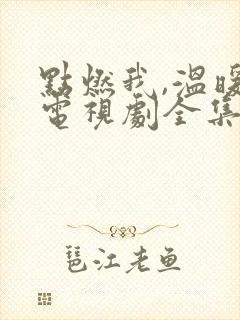 點燃我,溫暖
電視劇全集
琶江老鱼